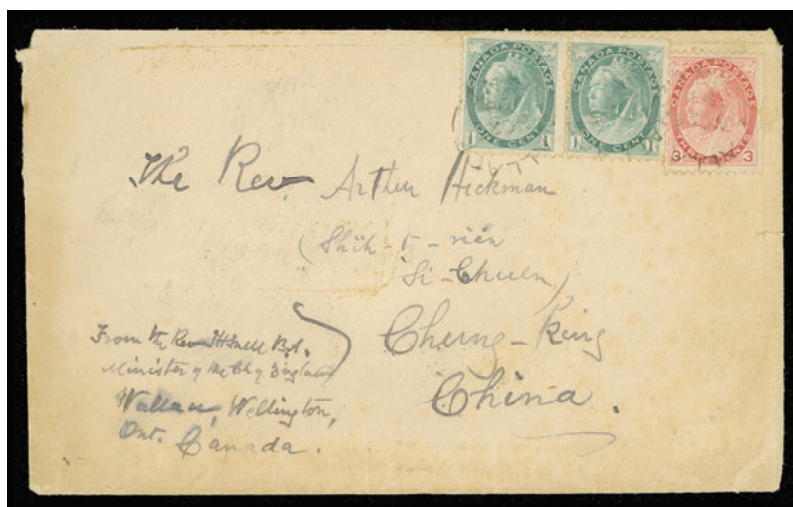 CANADA POSTAGE
1 ONE CENT 1
CANADA POSTAGE
1 ONE CENT 1
CANADA POSTAGE
3 THREE CENTS 3
The Rev. Arthur Hickman
(Shih-
Si-Chuen)
Chung-King
China.
From the Rev
Minister of the Ch of England
Wallace, Wellington,
Ont. Canada.